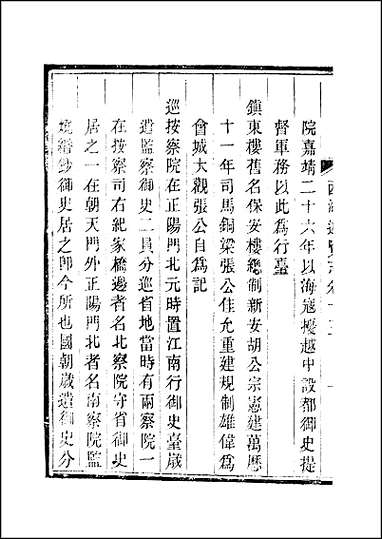 院嘉靖二十六年以海寇擾越中設都御史提
督軍務以此爲行臺
鎮東樓舊名保安樓總制新安胡公宗憲建萬曆
十一年司馬銅梁張公佳允重建規制雄偉爲
會城大觀張公自爲記
巡按察院在正陽門北元時置江南行御史臺歲
遣監察御史二員分巡省地當時有兩察院一
在按察司右紀家橋邊者名北察院守省御史
居之一在朝天門外正陽門北者名南察院監
燒鈔御史居之卽今所也國朝歲遣御史分